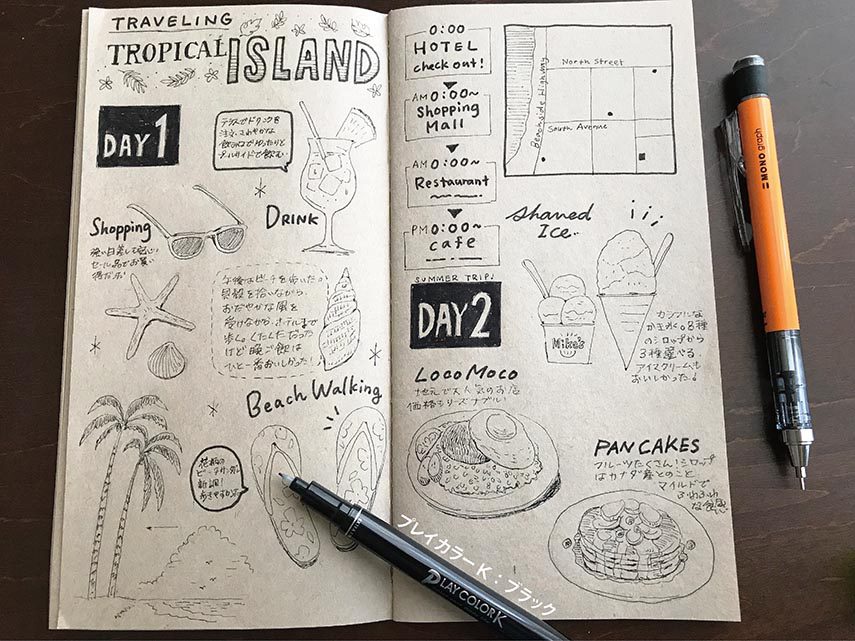 TRAVELING
TROPICAL ISLAND
DAY 1
テラスでドリンクを
DRINK
Shopping
強い日差しで
セール品でお買い
得だった!
午後はビーチを歩いた
貝殻を拾いながら
おだやかな風を
受けながら、ホテルまで
歩く。くたくただった
けど晩ご飯は
ひと一番おいしかった!
Beach Walking
花柄の
0:00
HOTEL
check out!
AM 0:00~
Shopping
Mall
AM 0:00~
Restaurant
PM 0:00~
cafe
SUMMER TRIP!
DAY 2
North Street
Beachside Highway
South Avenue
Shaved
Ice
Mike's
カラフルな
かき氷。8種
のシロップから
3種選べる。
アイスクリームも
おいしかった。
Loco Moco
地元で大人気のお店
価格もリーズナブル!
PANCAKES
フルーツたくさん!シロップ
はカナダ産とのこと
マイルドで
ふわふわ
な食感
MONO graph
プレイカラーK:ブラック
PLAY COLOR K